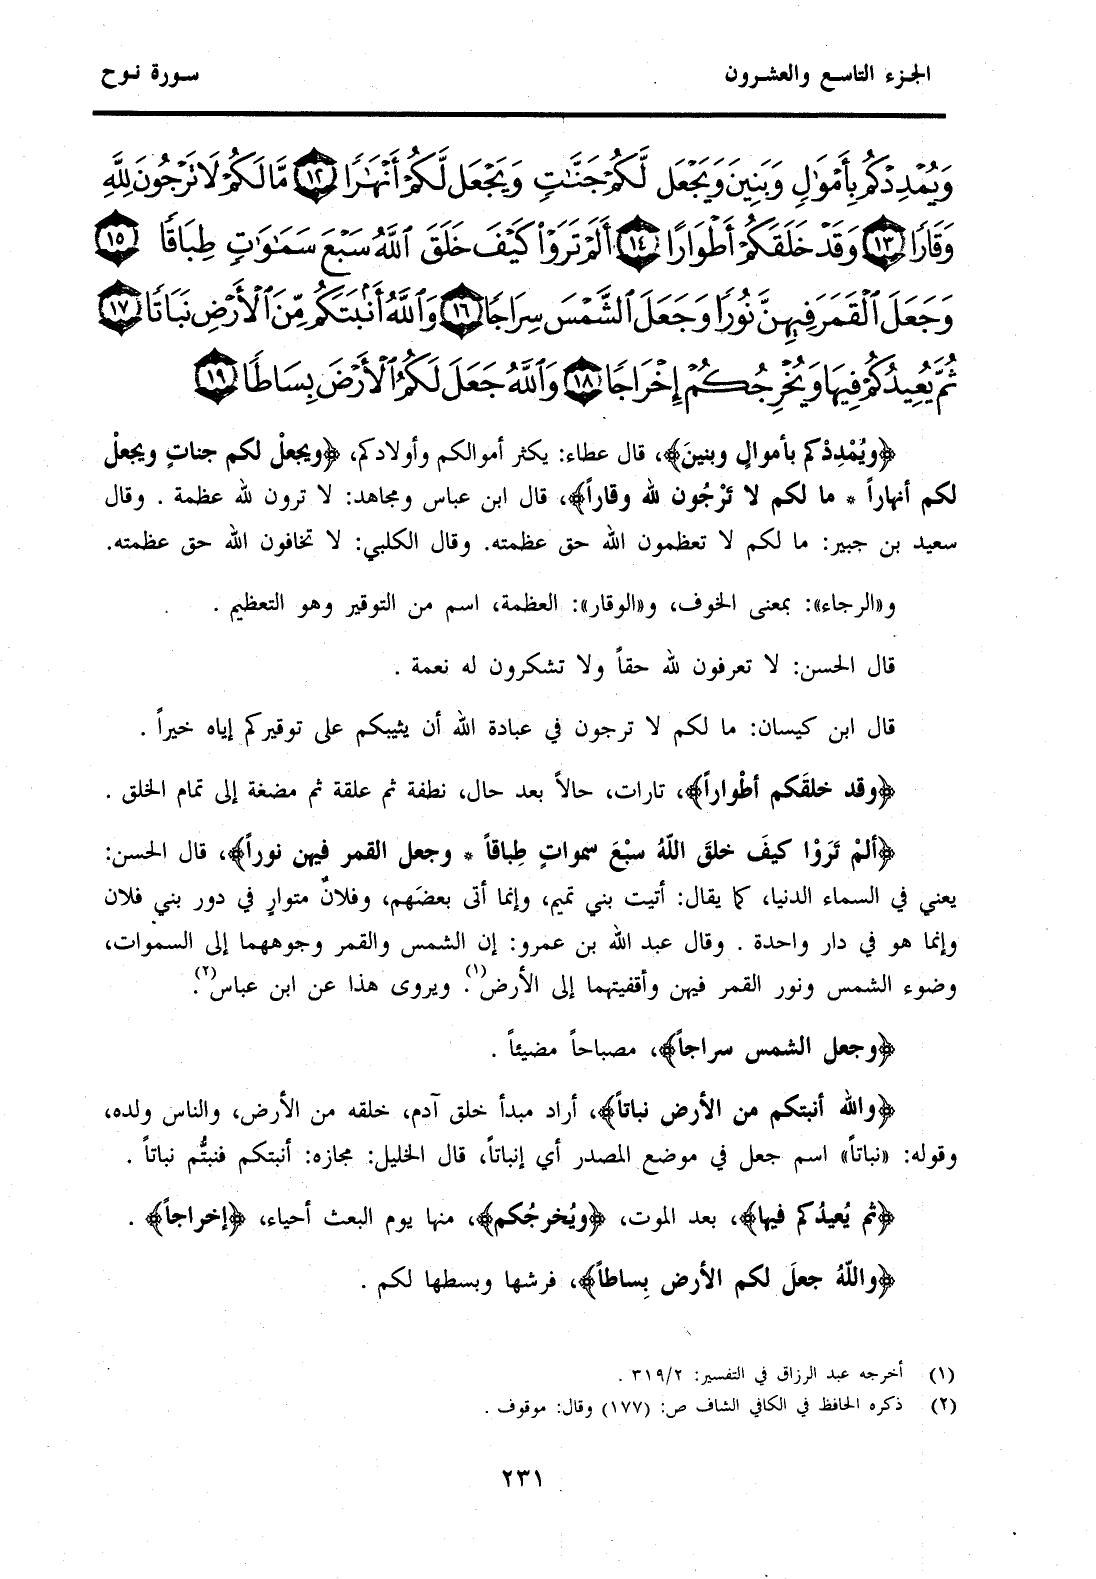 الجزء التاسع والعشرون
سورة نوح
وَيُمْدِدْكُم بِأَمْوَٰلٍ وَبَنِينَ وَيَجْعَل لَّكُمْ جَنَّٰتٍ وَيَجْعَل لَّكُمْ أَنْهَٰرًا ١٢ مَّا لَكُمْ لَا تَرْجُونَ لِلَّهِ
وَقَارًا ١٣ وَقَدْ خَلَقَكُمْ أَطْوَارًا ١٤ أَلَمْ تَرَوْا۟ كَيْفَ خَلَقَ ٱللَّهُ سَبْعَ سَمَٰوَٰتٍ طِبَاقًا ١٥
وَجَعَلَ ٱلْقَمَرَ فِيهِنَّ نُورًا وَجَعَلَ ٱلشَّمْسَ سِرَاجًا ١٦ وَٱللَّهُ أَنۢبَتَكُم مِّنَ ٱلْأَرْضِ نَبَاتًا ١٧
ثُمَّ يُعِيدُكُمْ فِيهَا وَيُخْرِجُكُمْ إِخْرَاجًا ١٨ وَٱللَّهُ جَعَلَ لَكُمُ ٱلْأَرْضَ بِسَاطًا ١٩
﴿ويُمْدِدْكم بأموالٍ وبنينَ﴾، قال عطاء: يكثر أموالكم وأولادكم، ﴿ويجعلْ لكم جناتٍ ويجعلْ
لكم أنهاراً * ما لكم لا تَرْجُون لله وقاراً﴾، قال ابن عباس ومجاهد: لا ترون لله عظمة . وقال
سعيد بن جبير: ما لكم لا تعظمون الله حق عظمته. وقال الكلبي: لا تخافون الله حق عظمته.
و«الرجاء»: بمعنى الخوف، و«الوقار»: العظمة، اسم من التوقير وهو التعظيم .
قال الحسن: لا تعرفون لله حقاً ولا تشكرون له نعمة .
قال ابن كيسان: ما لكم لا ترجون في عبادة الله أن يثيبكم على توقيركم إياه خيراً .
﴿وقد خلقَكم أطْواراً﴾، تارات، حالاً بعد حال، نطفة ثم علقة ثم مضغة إلى تمام الخلق .
﴿ألمْ تَرَوْا كيفَ خلقَ اللّهُ سبْعَ سمواتٍ طِباقاً * وجعل القمر فيهن نوراً﴾، قال الحسن:
يعني في السماء الدنيا، كما يقال: أتيت بني تميم، وإنما أتى بعضَهم، وفلانٌ متوارٍ في دور بني فلان
وإنما هو في دار واحدة . وقال عبد الله بن عمرو: إن الشمس والقمر وجوههما إلى السموات،
وضوء الشمس ونور القمر فيهن وأقفيتهما إلى الأرض(١). ويروى هذا عن ابن عباس(٢).
﴿وجعل الشمس سراجاً﴾، مصباحاً مضيئاً .
﴿والله أنبتكم من الأرض نباتاً﴾، أراد مبدأ خلق آدم، خلقه من الأرض، والناس ولده،
وقوله: «نباتاً» اسم جعل في موضع المصدر أي إنباتاً، قال الخليل: مجازه: أنبتكم فنبتُّم نباتاً .
﴿ثم يُعيدُكم فيها﴾، بعد الموت، ﴿ويُخرجُكم﴾، منها يوم البعث أحياء، ﴿إخراجاً﴾ .
﴿واللّهُ جعلَ لكم الأرض بِساطاً﴾، فرشها وبسطها لكم .
(١) أخرجه عبد الرزاق في التفسير: ٣١٩/٢ .
(٢) ذكره الحافظ في الكافي الشاف ص: (١٧٧) وقال: موقوف .
٢٣١